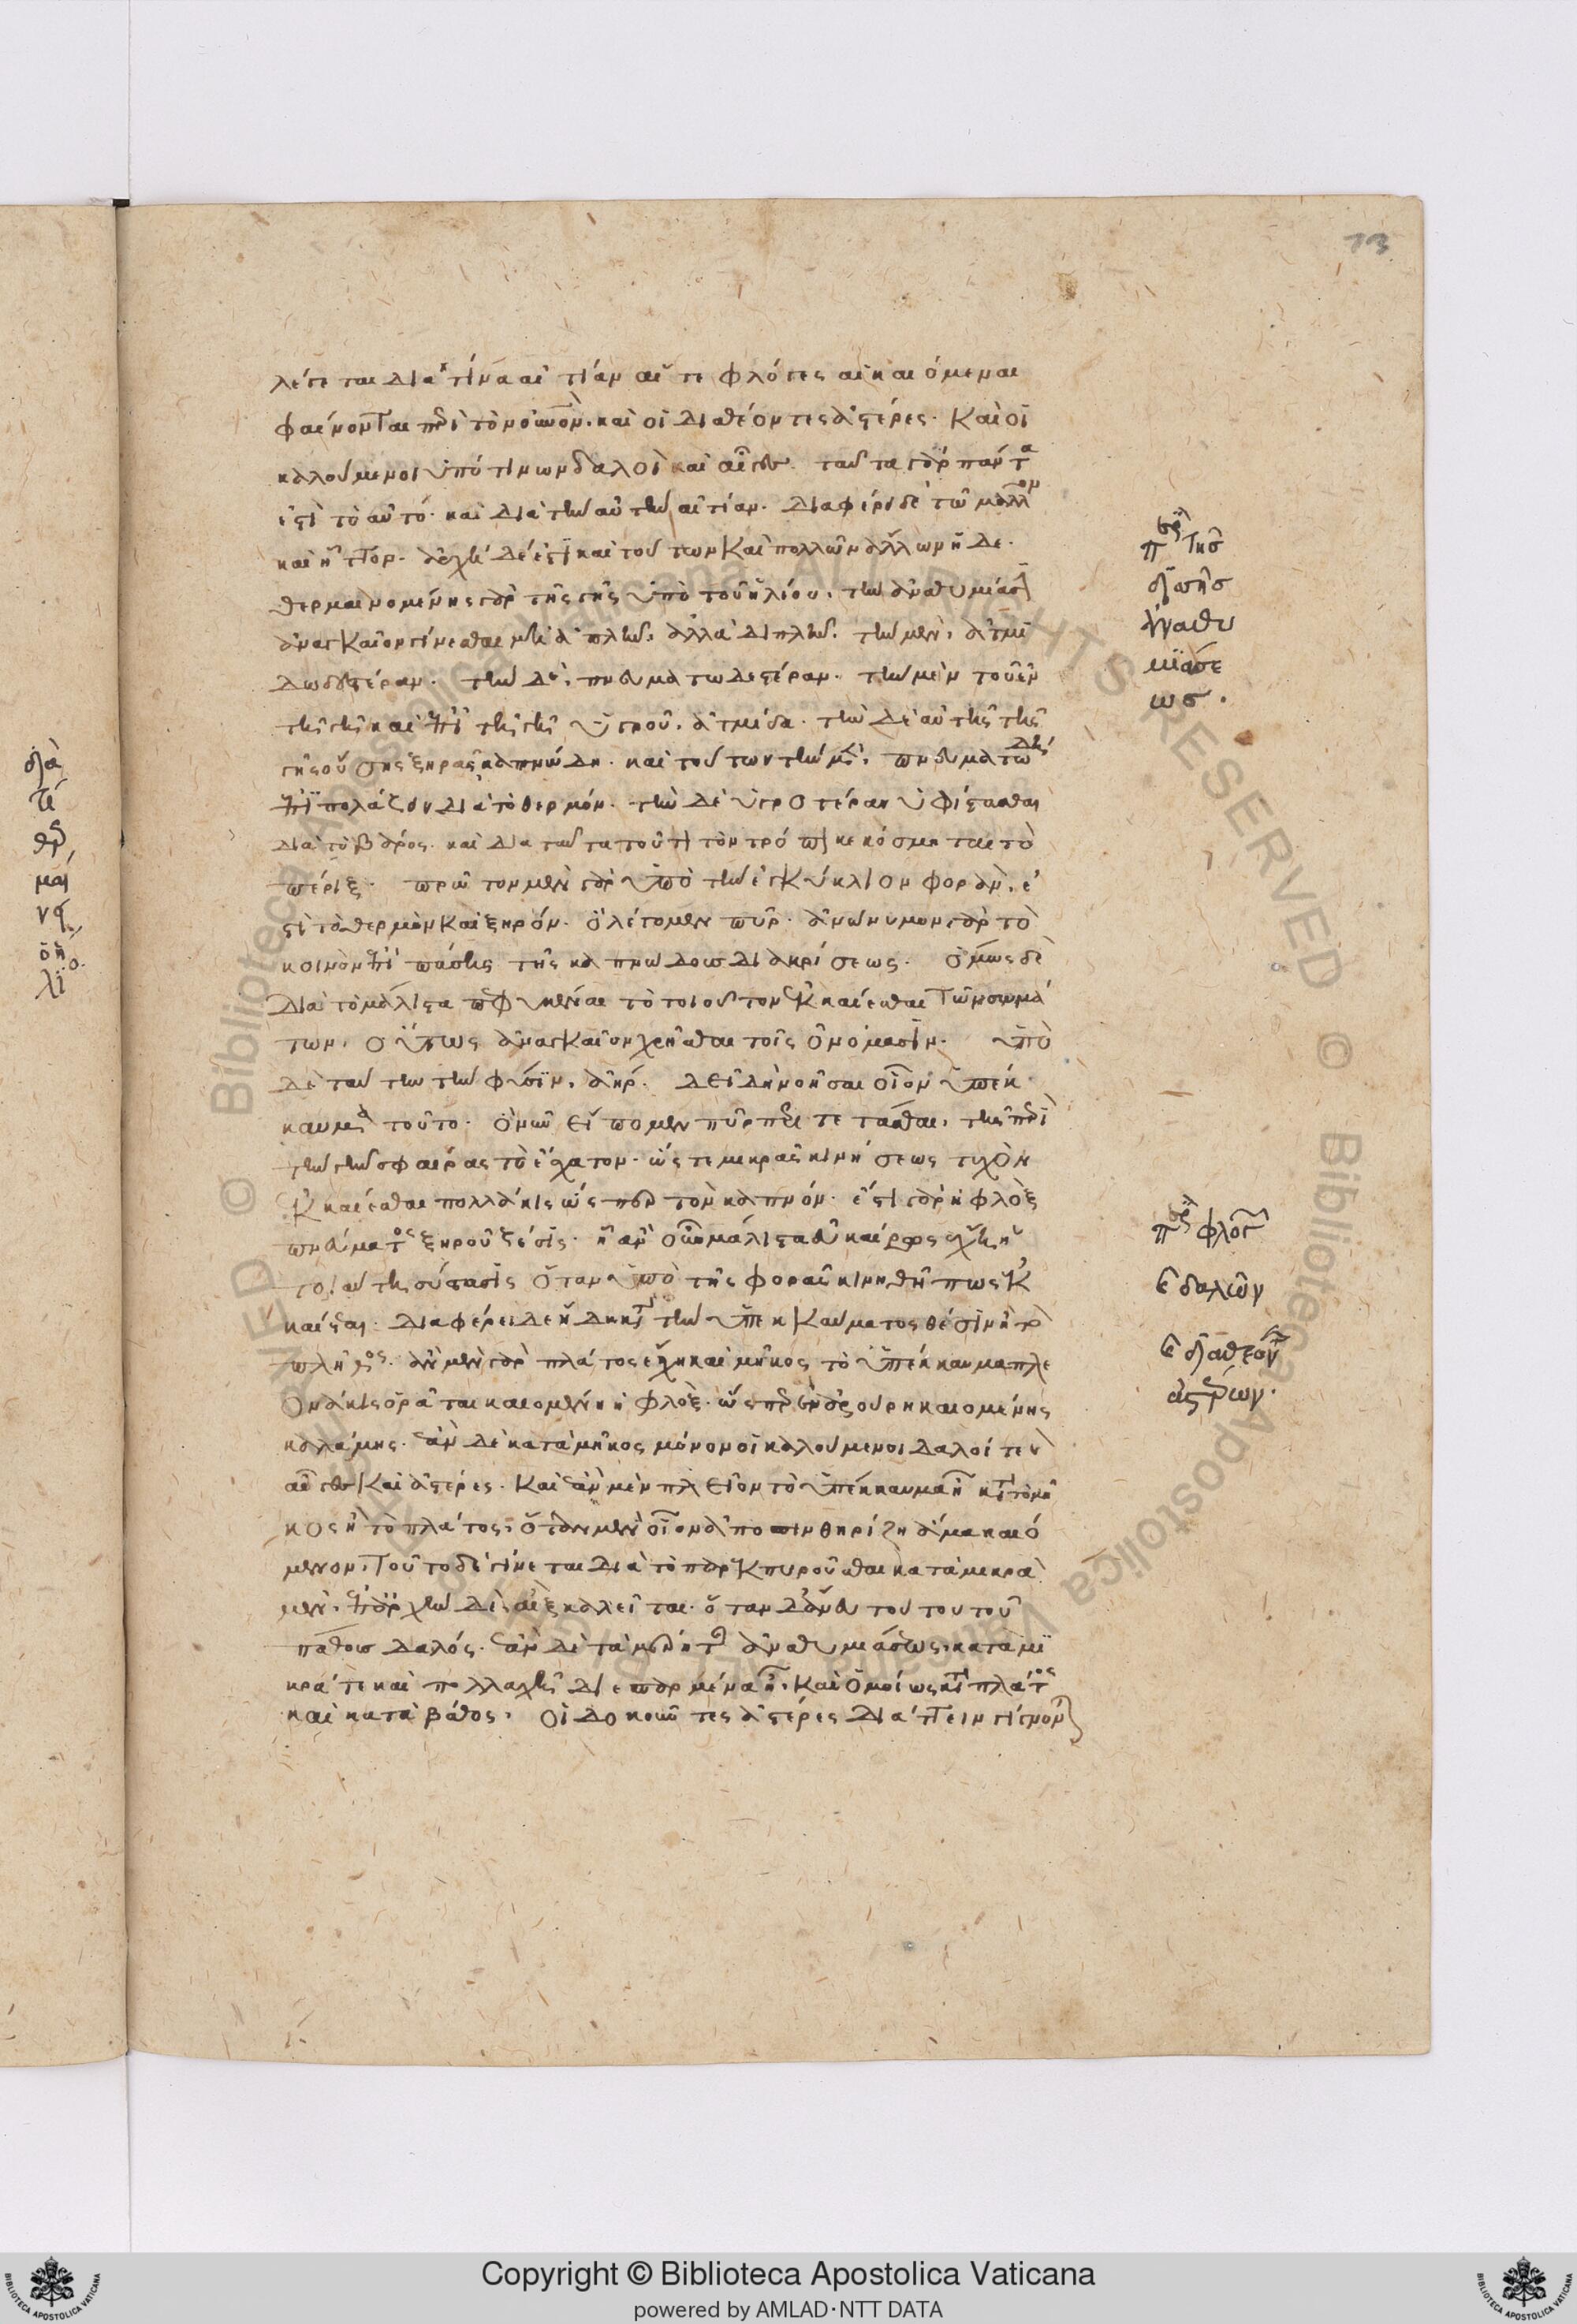 13
λέγεται διὰ τίνα αἰτίαν αἵ τε φλόγες αἱ καιόμεναι
φαίνονται περὶ τὸν οὐνόν. καὶ οἱ διαθέοντες ἀστέρες. καὶ οἱ
καλούμενοι ὑπό τινων δαλοὶ καὶ αἶγες. ταῦτα γὰρ πάντα
ἐστὶ τὸ αὐτό. καὶ διὰ τὴν αὐτὴν αἰτίαν. διαφέρει δὲ τῶ μᾶλλον
καὶ ἧττον. ἀρχὴ δέ ἐστι καὶ τούτων καὶ πολλῶν ἄλλων ἥδε.
θερμαινομένης γὰρ τῆς γῆς ὑπὸ τοῦ ἡλίου, τὴν ἀναθυμίασιν
ἀναγκαῖον γίνεσθαι μὴ ἁπλῆν, ἀλλὰ διπλῆν. τὴν μὲν, ἀτμι
δωδεστέραν. τὴν δὲ, πνευματωδεστέραν. τὴν μὲν τοῦ ἐν
τῆ γῆ καὶ ἐπὶ τῆ γῆ ὑγροῦ, ἀτμίδα. τὴν δὲ αὐτῆς τῆς
γῆς οὔσης ξηρᾶς καπνώδη. καὶ τούτων τὴν μὲν, πνευματώδη
ἐπιπολάζειν διὰ τὸ θερμόν. τὴν δὲ ὑγροτέραν ὑφίστασθαι
διὰ τὸ βάρος. καὶ διὰ ταῦτα τοῦτον τὸν τρόπον κεκόσμηται τὸ
πέριξ. πρῶτον μὲν γὰρ ὑπὸ τὴν ἐγκύκλιον φορὰν, ἐ
στὶ τὸ θερμὸν καὶ ξηρόν. ὃ λέγομεν πῦρ. ἀνώνυμον γὰρ τὸ
κοινὸν ἐπὶ πάσης τῆς καπνώδους διακρίσεως. ὅμως δὲ
διὰ τὸ μάλιστα πεφυκέναι τὸ τοιοῦτον ἐκκαίεσθαι τῶν σωμά
των, οὕτως ἀναγκαῖον χρῆσθαι τοῖς ὀνόμασιν. ὑπὸ
δὲ ταύτην τὴν φύσιν, ἀήρ. δεῖ δὴ νοῆσαι οἷον ὑπέκ
καυμα τοῦτο. ὃ νῦν εἴπομεν πῦρ περιτετάσθαι, τῆς περὶ
τὴν γῆν σφαίρας τὸ ἔσχατον. ὥστε μικρᾶς κινήσεως τυχὸν
ἐκκαίεσθαι πολλάκις ὥσπερ τὸν καπνόν. ἔστι γὰρ ἡ φλὸξ
πνεύματος ξηροῦ ζέσις. ἧ ἂν οὖν μάλιστα εὐκαίρως ἔχη ἡ
τοιαύτη σύστασις ὅταν ὑπὸ τῆς φορᾶς κινηθῆ πως ἐκ
καίεται. διαφέρει δὲ ἤδη κατὰ τὴν τοῦ ὑπεκκαύματος θέσιν ἢ τὸ
πλῆθος. ἂν μὲν γὰρ πλάτος ἔχη καὶ μῆκος τὸ ὑπέκκαυμα πλε
ονάκις ὁρᾶται καιομένη ἡ φλὸξ. ὥσπερ ἐν ἀρούρη καιομένης
καλάμης. ἂν δὲ κατὰ μῆκος μόνον οἱ καλούμενοι δαλοί τε καὶ
αἶγες καὶ ἀστέρες. καὶ ἂν μὲν πλεῖον τὸ ὑπέκκαυμα ἦ κατὰ τὸ μῆ
κος ἢ τὸ πλάτος, ὅταν μὲν οἷον ἀποσπινθηρίζη ἅμα καιό
μενον, τοῦτο δὲ γίνεται διὰ τὸ παρεκπυροῦσθαι κατὰ μικρὰ
μὲν, ἐπ᾽ ἀρχὴν δὲ, αἲξ καλεῖται. ὅταν δ᾽ ἄνευ τούτου τοῦ
πάθους δαλός. ἂν δὲ τὰ μήκη τῆς ἀναθυμιάσεως, κατὰ μι
κρά τε καὶ πολλαχῆ διεσπαρμένα ἦ, καὶ ὁμοίως κατὰ πλάτος
καὶ κατὰ βάθος, οἱ δοκοῦντες ἀστέρες διάττειν γίγνον
περὶ τῆς
διττῆς
ἀναθυ
μιάσε
ως.
περὶ φλογῶν
καὶ δαλῶν
καὶ διαθεόντων
ἀστέρων.
Copyright © Biblioteca Apostolica Vaticana
powered by AMLAD·NTT DATA